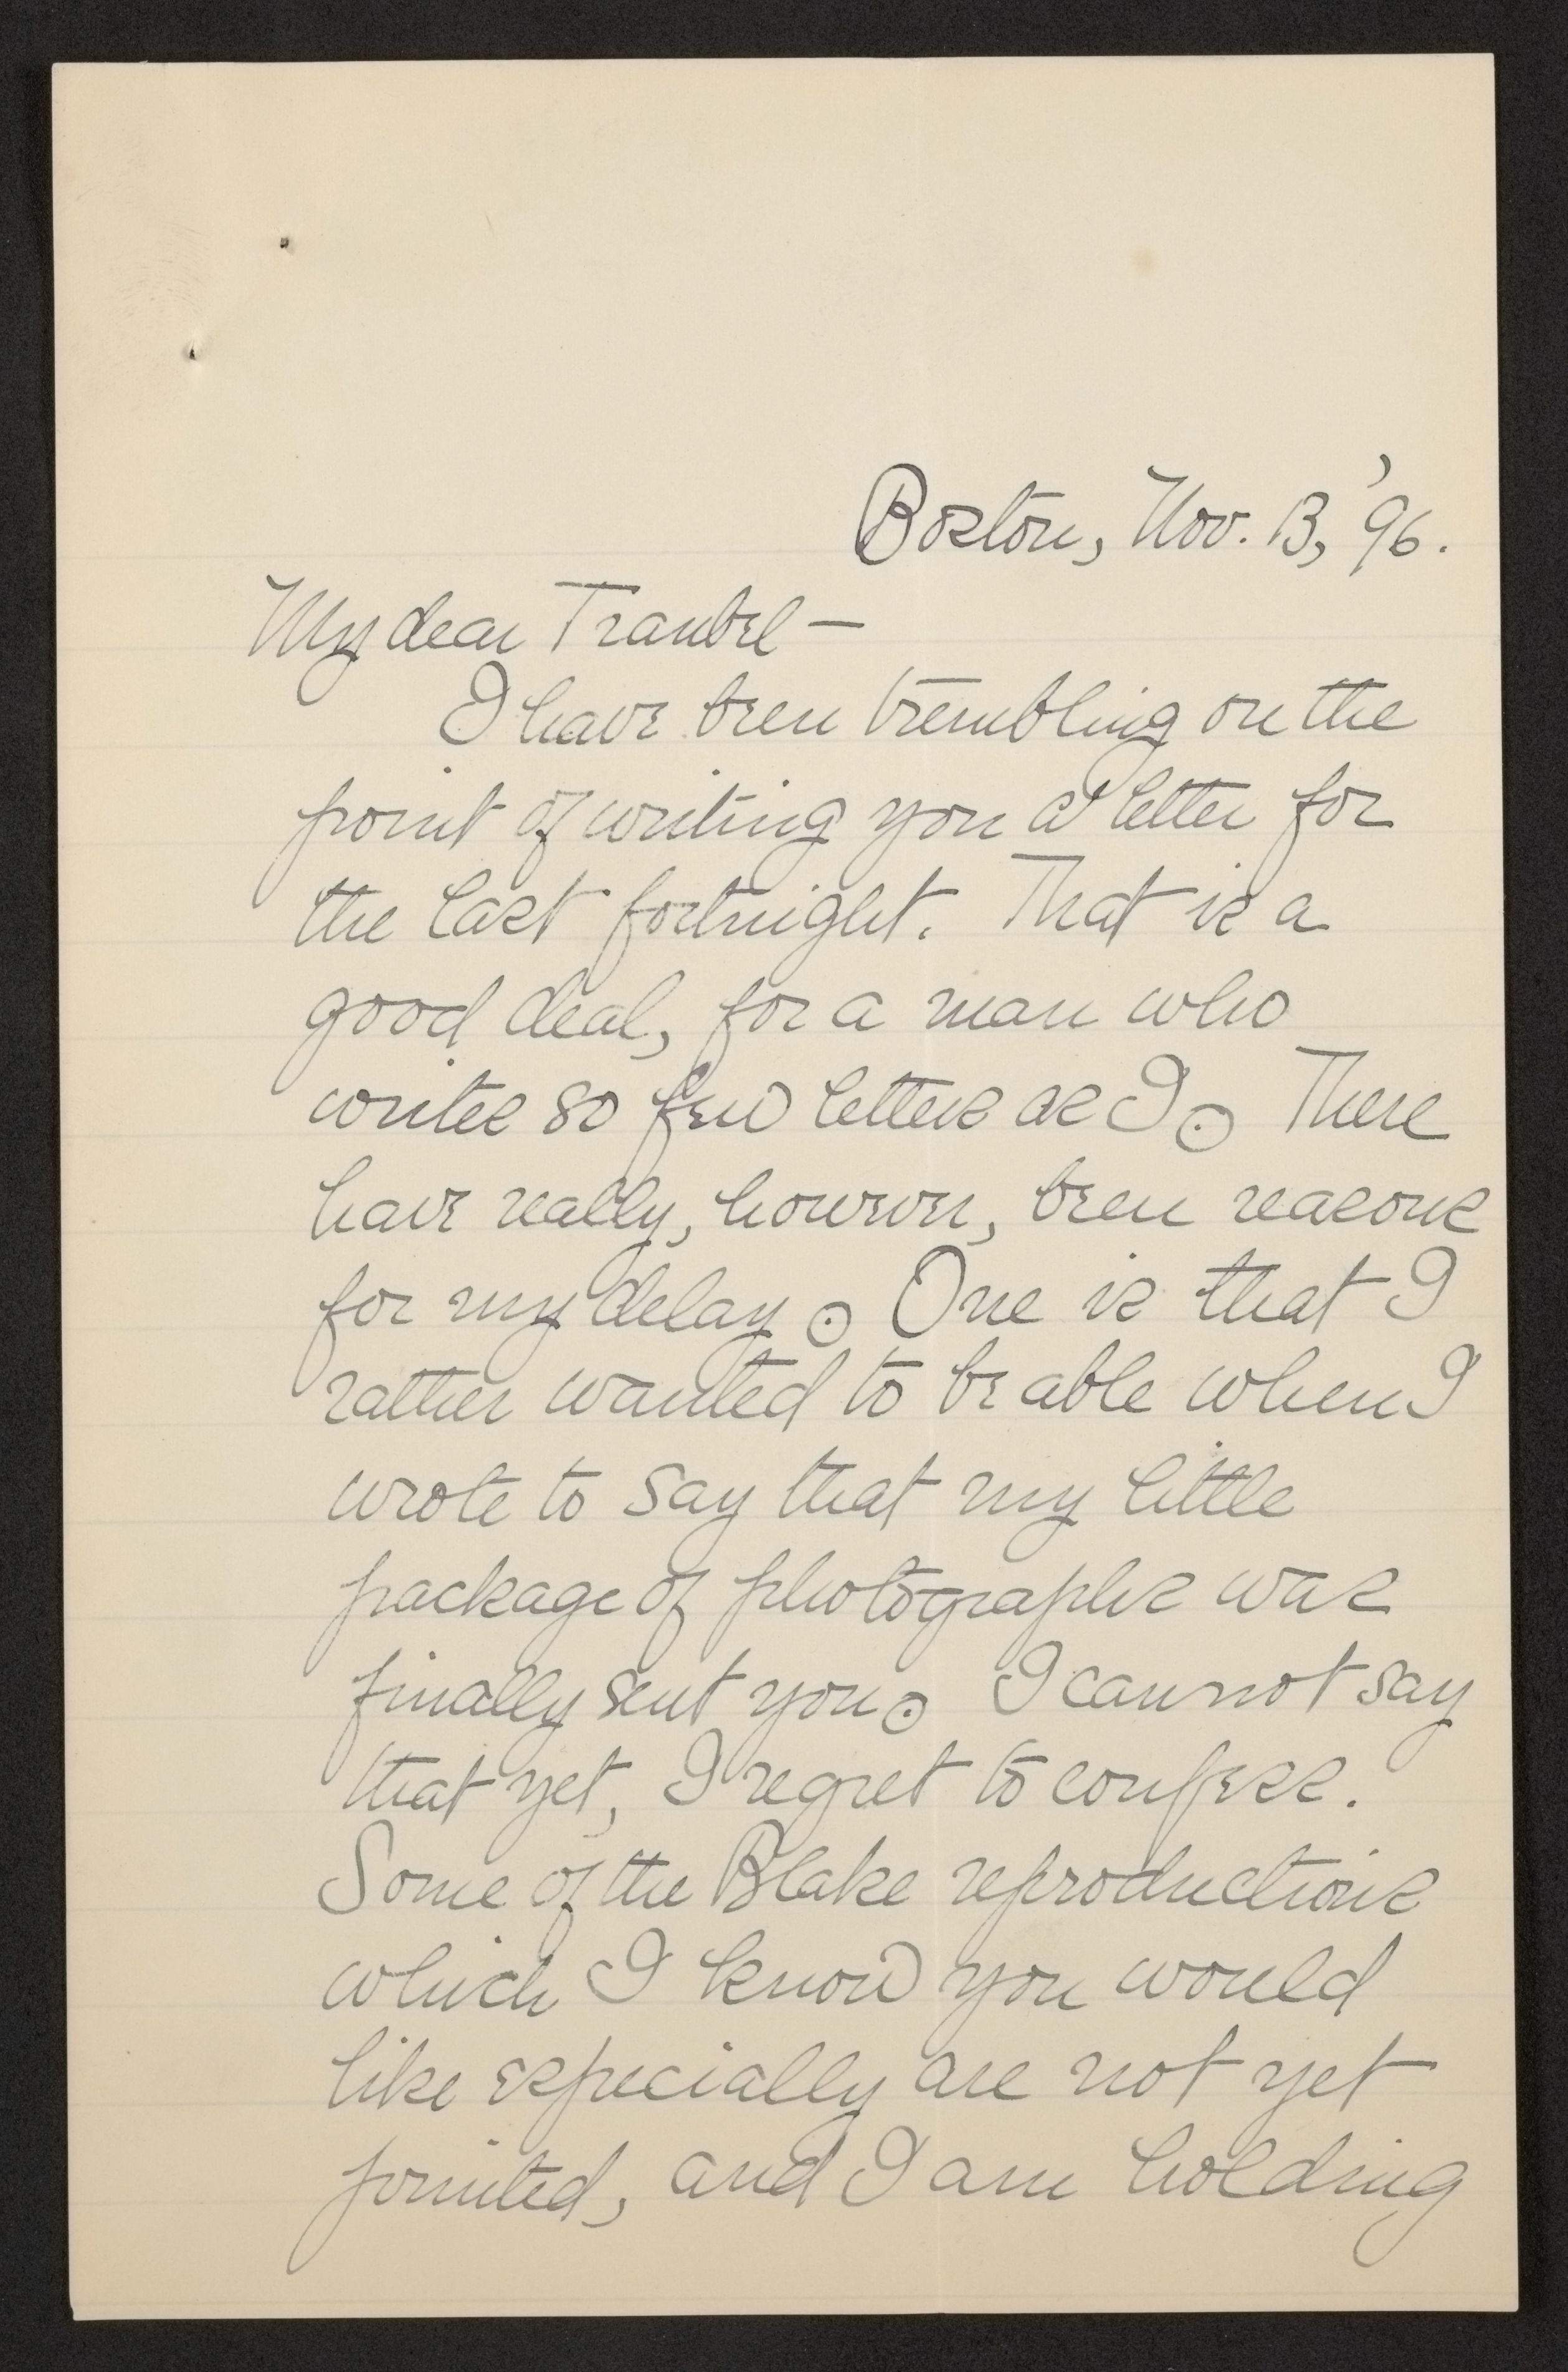 Boston, Nov. 13, '96.
My dear Traubel —
I have been trembling on the
point of writing you a letter for
the last fortnight. That is a
good deal, for a man who
writes so few letters as I. There
have really, however, been reasons
for my delay. One is that I
rather wanted to be able when I
wrote to say that my little
package of photographs was
finally sent you. I cannot say
that yet, I regret to confess.
Some of the Blake reproductions
which I know you would
like especially are not yet
printed, and I am holding